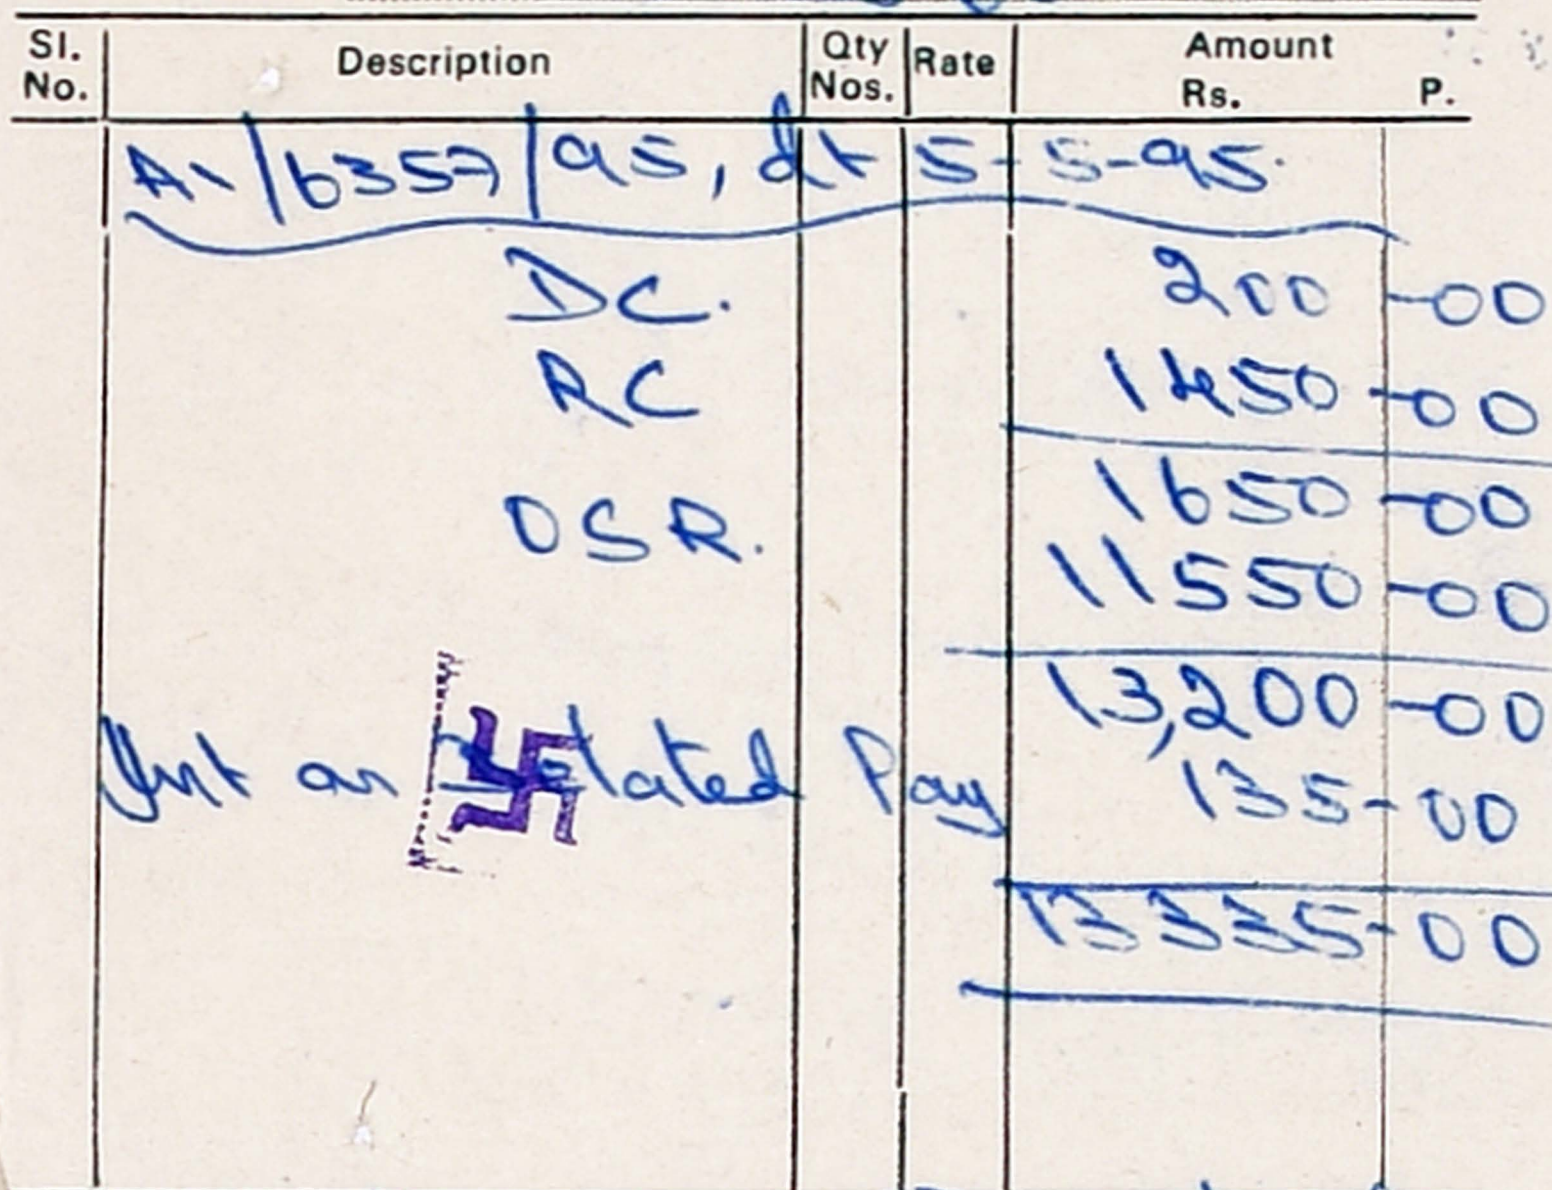 Sl. No. Description Qty Nos. Rate Amount Rs. P.
A1/6357/95, dt 5-5-95.
DC. 200-00
RC 1450-00
1650-00
OSR. 11550-00
13,200-00
Int on belated Pay 135-00
13335-00